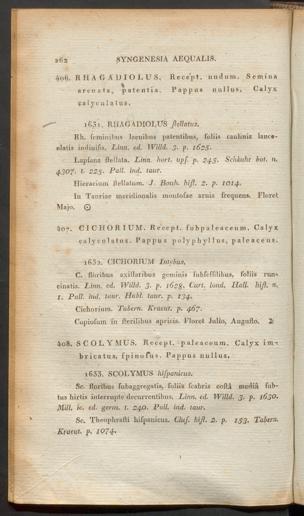 262 SYNGENESIA AEQUALIS.
406. RHAGADIOLUS. Recept. nudum. Semina
arcuata, patentia. Pappus nullus. Calyx
calyculatus.
1631. RHAGADIOLUS stellatus.
Rh. seminibus laevibus patentibus, foliis caulinis lance-
olatis indivisis. Linn. ed. Willd. 3. p. 1625.
Lapsana stellata. Linn. hort. ups. p. 245. Schkuhr bot. n.
4307. t. 225. Pall. ind. taur.
Hieracium stellatum. J. Bauh. hist. 2. p. 1014.
In Tauriae meridionalis montosae arvis frequens. Floret
Majo. ☉
407. CICHORIUM. Recept. subpaleaceum. Calyx
calyculatus. Pappus polyphyllus, paleaceus.
1632. CICHORIUM Intybus,
C. floribus axillaribus geminis subsessilibus, foliis run-
cinatis. Linn. ed. Willd. 3. p. 1628. Curt. lond. Habl. hist. n.
1. Pall. ind. taur. Habl. taur. p. 134.
Cichorium. Tabern. Kraeut. p. 467.
Copiosum in sterilibus apricis. Floret Julio, Augusto. ♃
408. SCOLYMUS. Recept. paleaceum. Calyx im-
bricatus, spinosus. Pappus nullus.
1633. SCOLYMUS hispanicus.
Sc. floribus subaggregatis, foliis scabris costâ mediâ sub-
tus hirtis interrupte decurrentibus. Linn. ed. Willd. 3. p. 1630.
Mill. ic. ed. germ. t. 240. Pall. ind. taur.
Sc. Theophrasti hispanicus. Clus. hist. 2. p. 153. Tabern.
Kraeut. p. 1074.